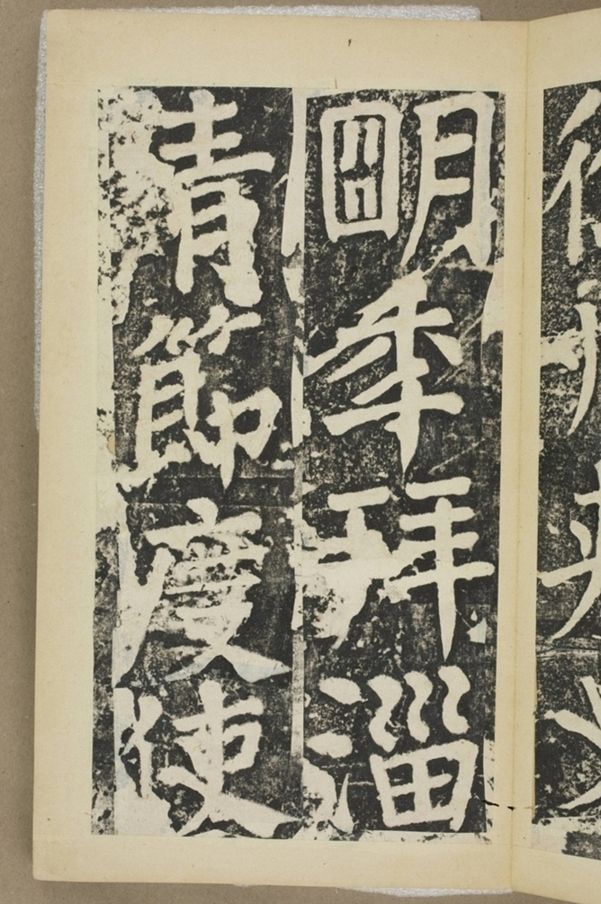 朙年拜淄
青節度使